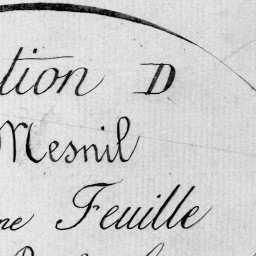 tion D
Mesnil
ne Feuille